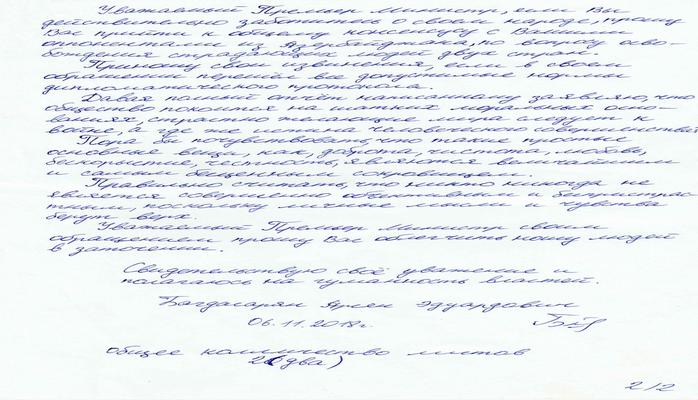 Уважаемый Премьер Министр, если Вы
действительно заботитесь о своем народе, прошу
Вас прийти к общему консенсусу с Вашими
оппонентами из Азербайджана, по вопросу осво-
бождения страдающих людей двух стран.
Приношу свои извинения, если в своем
обращении перешёл все допустимые нормы
дипломатического протокола.
Давая полный отчёт написанному заявляю, что
общество покоится на шатких моральных осно-
ваниях, страстно желающие мира следует к
войне, а где же истина человеческого совершенства.
Пора бы почувствовать, что такие простые
основные вещи, как, доброта, чистота, любовь,
бескорыстие, честность, являются величайшим
и самым бесценным сокровищем.
Правильно считать, что никто никогда не
является совершенно объективным и беспристрас-
тным, поскольку личные мысли и чувства
берут верх.
Уважаемый Премьер Министр своим
обращением прошу Вас облегчить ношу людей
в заточении.
Свидетельствую своё уважение и
полагаюсь на гуманность властей.
Багдасарян Арсен Эдуардович
06.11.2018г.
общее количество листов
2 (два)
2/2